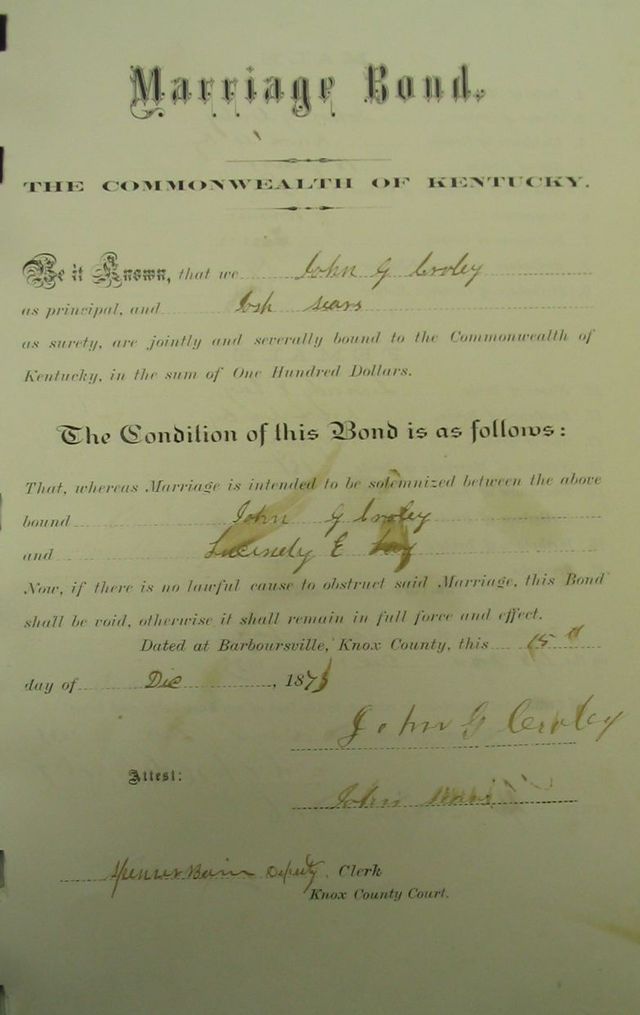 Marriage Bond.
THE COMMONWEALTH OF KENTUCKY.
Be it Known, that we John G Croley
as principal, and Josh Sears
as surety, are jointly and severally bound to the Commonwealth of
Kentucky, in the sum of One Hundred Dollars.
The Condition of this Bond is as follows:
That, whereas Marriage is intended to be solemnized between the above
bound John G Croley
and E
Now, if there is no lawful cause to obstruct said Marriage, this Bond
shall be void, otherwise it shall remain in full force and effect.
Dated at Barboursville, Knox County, this 15th
day of Dec, 187
John G Croley
Attest:
John
Deputy Clerk
Knox County Court.